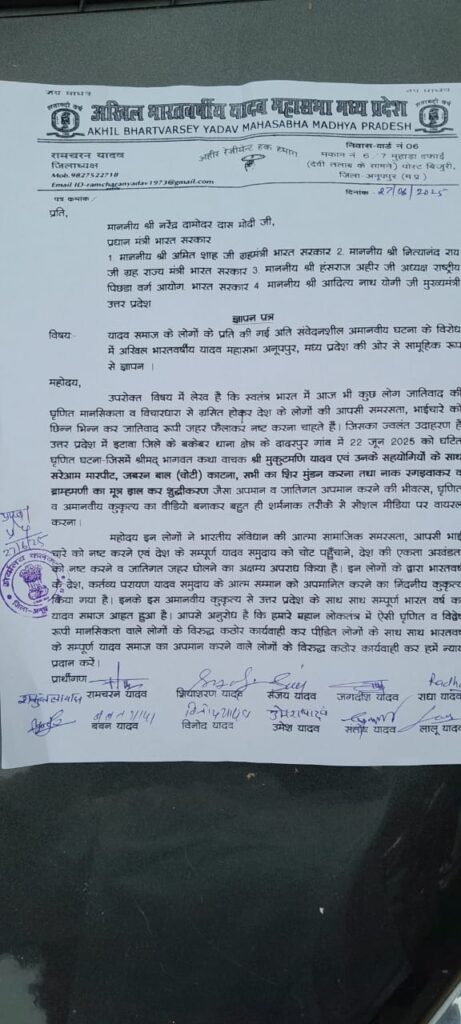 जय माधव
जय यादव
अखिल भारतवर्षीय यादव महासभा मध्य प्रदेश
AKHIL BHARTVARSEY YADAV MAHASABHA MADHYA PRADESH
रामचरन यादव
जिलाध्यक्ष
Mob.9827522718
Email ID-ramcharanyadav1973@gmail.com
अहीर रेजीमेन्ट हक हमारा
निवास-वार्ड नं 06
मकान नं 6/7 मुहाड़ा दफाई
(देवी तलाब के सामने) पोस्ट बिजुरी,
जिला-अनूपपुर (म.प्र.)
पत्र क्रमांक
दिनांक - 27/06/2025
प्रति,
माननीय श्री नरेद्र दामोदर दास मोदी जी,
प्रधान मंत्री भारत सरकार
1 माननीय श्री अमित शाह जी ग्रहमंत्री भारत सरकार 2. माननीय श्री नित्यानंद राय
जी ग्रह राज्य मंत्री भारत सरकार 3. माननीय श्री हंसराज अहीर जी अध्यक्ष राष्ट्रीय
पिछडा वर्ग आयोग, भारत सरकार 4 माननीय श्री आदित्य नाथ योगी जी मुख्यमंत्री
उत्तर प्रदेश
ज्ञापन पत्र
विषय:- यादव समाज के लोगों के प्रति की गई अति संवेदनशील अमानवीय घटना के विरोध
में अखिल भारतवर्षीय यादव महासभा अनूपपुर, मध्य प्रदेश की ओर से सामूहिक रूप
से ज्ञापन ।
महोदय,
उपरोक्त विषय में लेख है कि स्वतंत्र भारत में आज भी कुछ लोग जातिवाद की
घृणित मानसिकता व विचारधारा से ग्रसित होकर देश के लोगों की आपसी समरसता, भाईचारे को
छिन्न भिन्न कर जातिवाद रूपी जहर फैलाकर नष्ट करना चाहते है। जिसका ज्वलंत उदाहरण है
उत्तर प्रदेश में इटावा जिले के बकेबर थाना क्षेत्र के दादरपुर गांव में 22 जून 2025 को घटित
घृणित घटना-जिसमें श्रीमद् भागवत कथा वाचक श्री मुकुटमणि यादव एवं उनके सहयोगियों के साथ
सरेआम मारपीट, जबरन बाल (चोटी) काटना, सभी का शिर मुंडन करना तथा नाक रगड़वाकर व
ब्राम्हमणी का मूत्र डाल कर शुद्धीकरण जैसा अपमान व जातिगत अपमान करने की भीवत्स, घृणित
व अमानवीय कुकृत्य का वीडियो बनाकर बहुत ही शर्मनाक तरीके से सोशल मीडिया पर वायरल
करना।
महोदय इन लोगों ने भारतीय संविधान की आत्मा सामाजिक समरसता, आपसी भाई
चारे को नष्ट करने एवं देश के सम्पूर्ण यादव समुदाय को चोट पहुँचाने, देश की एकता अखंडता
को नष्ट करने व जातिगत जहर घोलने का अक्षम्य अपराध किया है। इन लोगों के द्वारा भारतवर्ष
के देश, कर्तव्य परायण यादव समुदाय के आत्म सम्मान को अपमानित करने का निंदनीय कुकृत्य
किया गया है। इनके इस अमानवीय कुकृत्य से उत्तर प्रदेश के साथ साथ सम्पूर्ण भारत वर्ष का
यादव समाज आहत हुआ है। आपसे अनुरोध है कि हमारे महान लोकतंत्र में ऐसी घृणित व विद्वेष
रूपी मानसिकता वाले लोगों के विरुद्ध कठोर कार्यवाही कर पीडित लोगों के साथ साथ भारतवर्ष
के सम्पूर्ण यादव समाज का अपमान करने वाले लोगों के विरुद्ध कठोर कार्यवाही कर हमें न्याय
प्रदान करें।
27/6/25
प्रार्थीगण
Radha
रामचरन यादव सियाशरण यादव संजय यादव जगदीश यादव राधा यादव
बबन यादव विनोद यादव उमेश यादव संतोष यादव लालू यादव